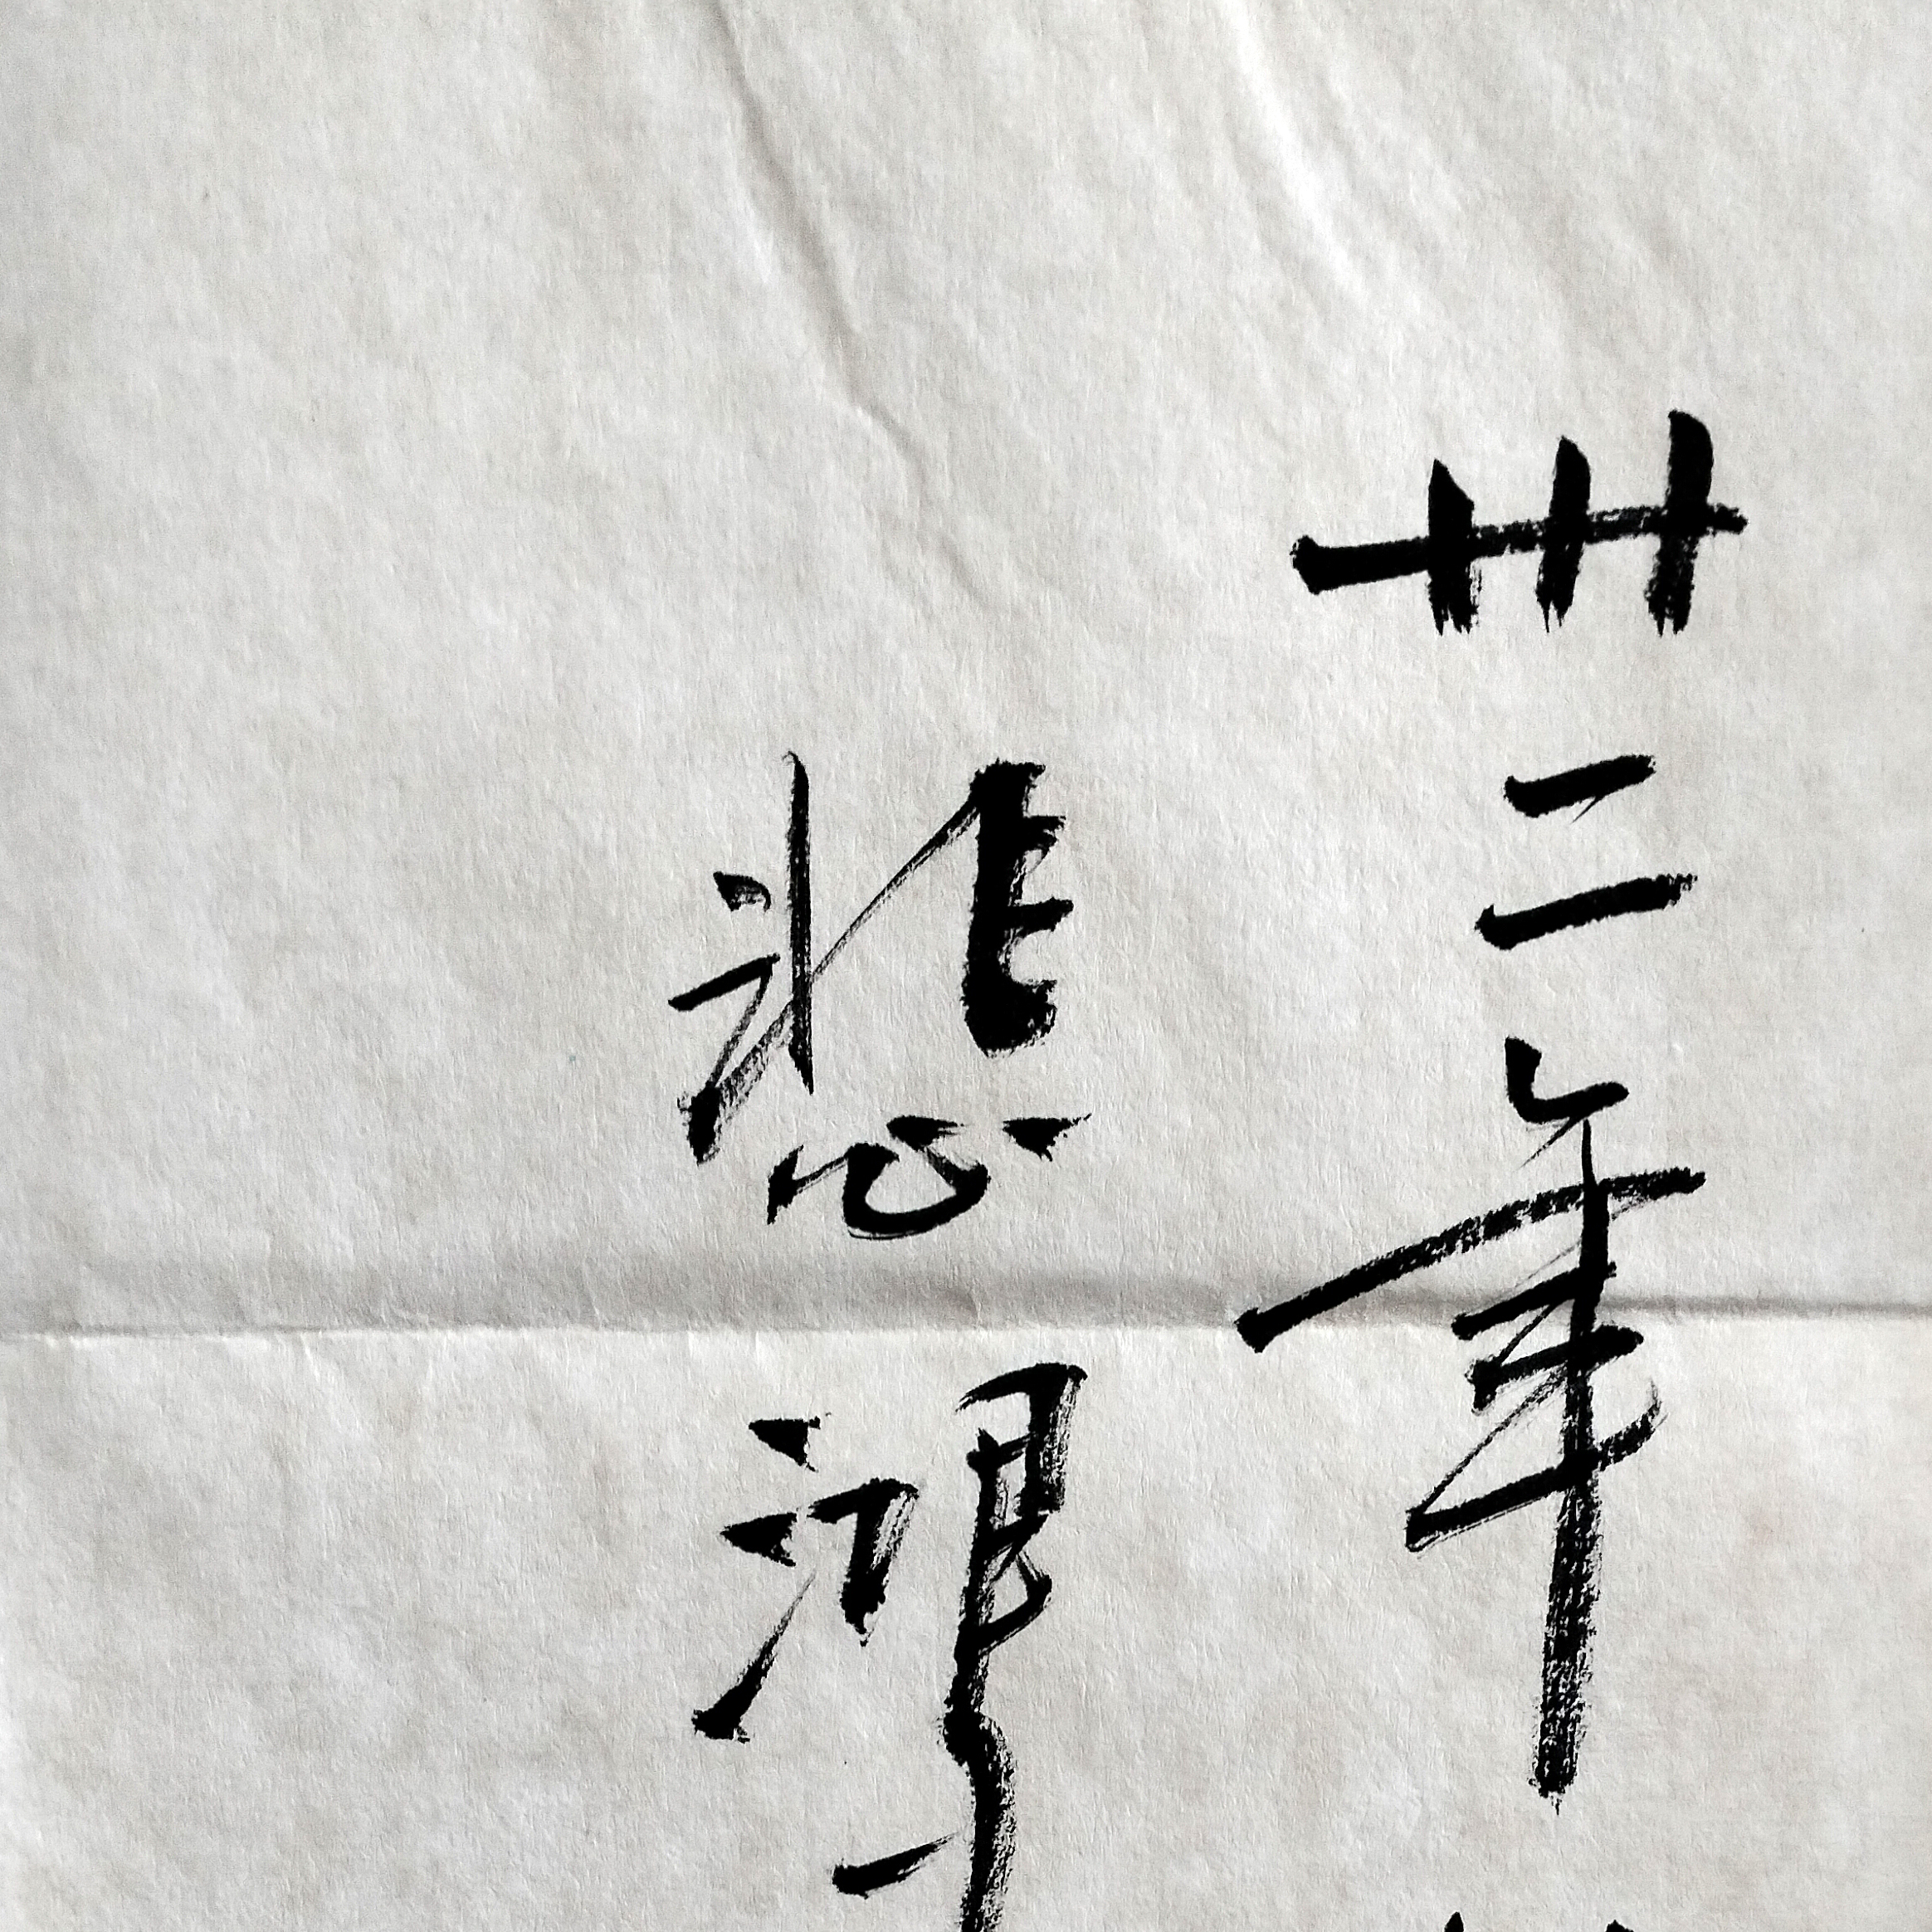 卅二年
悲鸿